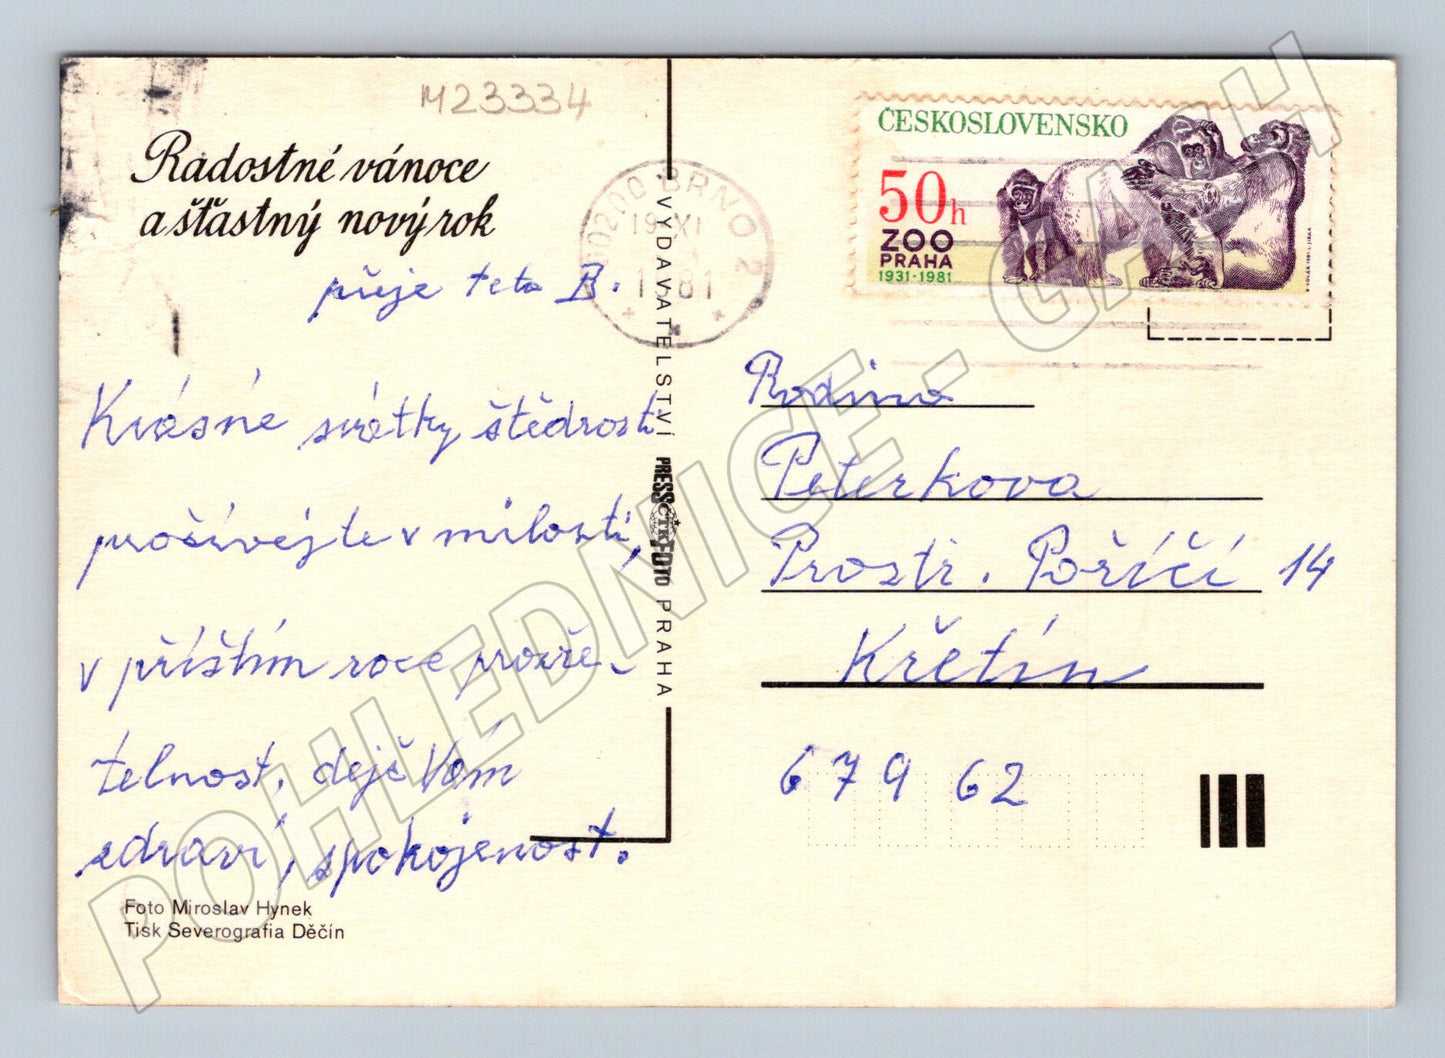 M23334
Radostné vánoce
a šťastný nový rok
přeje teta B.
Krásné svátky štědrosti
prožívejte v milosti,
v příštím roce prozře-
telnost. dejž Vám
zdraví, spokojenost.
Foto Miroslav Hynek
Tisk Severografia Děčín
VYDAVATELSTVÍ PRESSFOTO PRAHA
ČTK
602 00 BRNO 2
19.XI
81
ČESKOSLOVENSKO
50h
ZOO
PRAHA
1931-1981
Rodina
Peterkova
Prostř. Poříčí 14
Křetín
679 62
POHLEDNICE - GACH